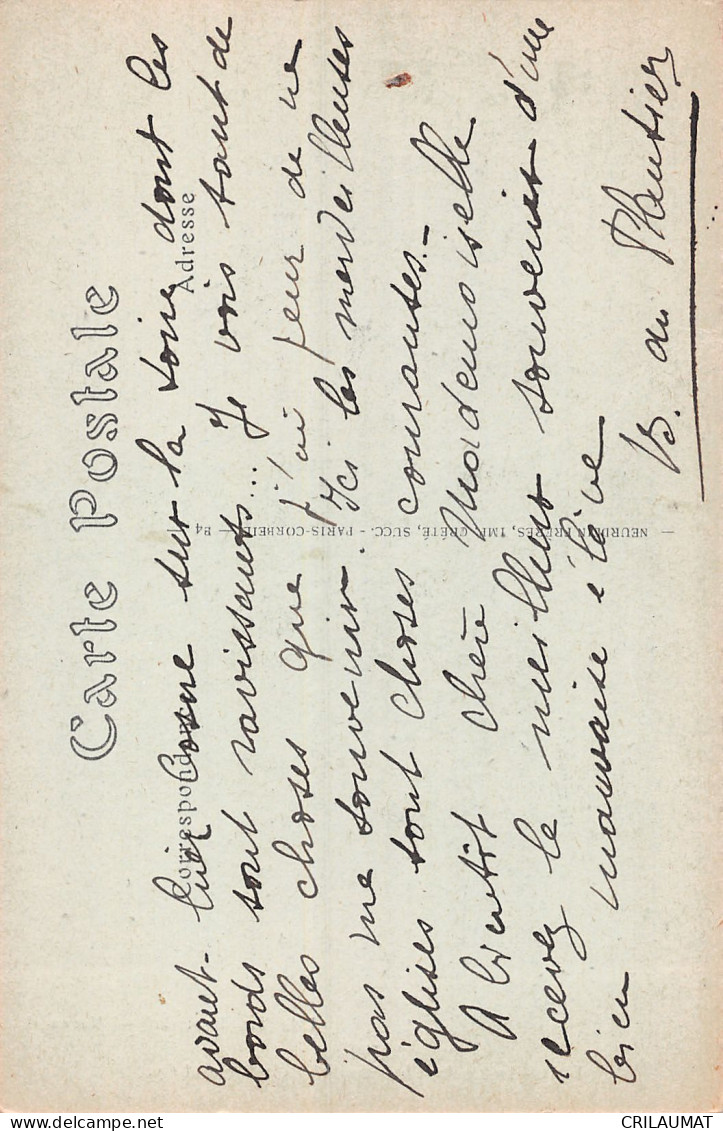 Carte Postale
Correspondance
Adresse
avant-hier Cosne sur la Loire dont les
bords sont ravissants... Je vois tant de
belles choses que j'ai peur de ne
pas me souvenir. Ici les merveilleuses
églises sont choses courantes.-
A bientôt chère Mademoiselle
recevez le meilleur souvenir d'une
bien mauvaise élève
B. du Plantier
— NEURDEIN FRÈRES, IMP. CRÉTÉ, SUCC. - PARIS-CORBEIL — E4
CRILAUMAT